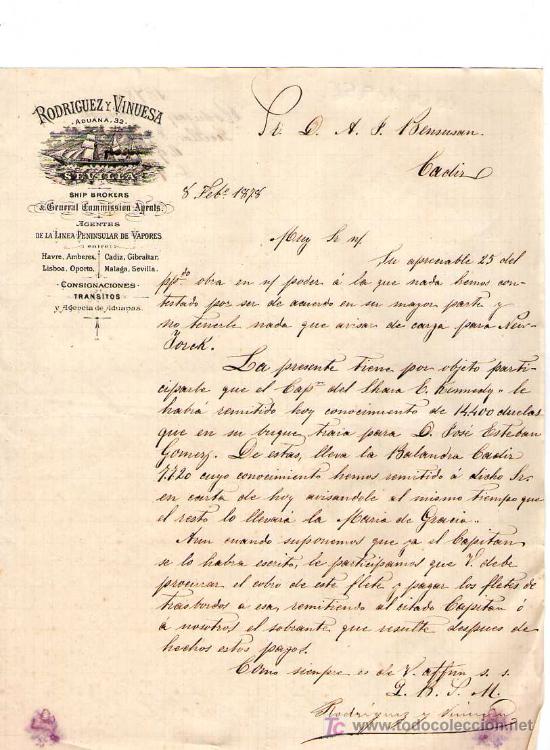 RODRIGUEZ Y VINUESA
ADUANA, 32
SEVILLA
SHIP BROKERS
& General Commission Agents.
AGENTES
DE LA LINEA PENINSULAR DE VAPORES
entre
Havre, Amberes, Cadiz, Gibraltar.
Lisboa, Oporto, Malaga, Sevilla.
CONSIGNACIONES
TRANSITOS
y Agencia de Aduanas.
Sr. D. A. J. Bensusan.
Cadiz
8 Feb.º 1878
Muy Sr. n/
Su apreciable 25 del
pp.do obra en n/ poder á la que nada hemos con-
testado por ser de acuerdo en su mayor parte y
no tenerle nada que avisar de carga para New-
Yorck.
La presente tiene por objeto parti-
ciparle que el Cap.n del Shara E. Kennedy le
habrá remitido hoy conocimiento de 14.400 duelas
que en su buque traia para D. José Esteban
Gomez. De estas, lleva la Balandra Cadiz
7.720 cuyo conocimiento hemos remitido á dicho Sr.
en carta de hoy avisandole al mismo tiempo que
el resto lo llevará la Maria de Gracia.
Aun cuando suponemos que ya el Capitan
se lo habra escrito, le participamos que V. debe
procurar el cobro de este flete y pagar los fletes de
trasbordos a esa, remitiendo al citado Capitan ó
á nosotros el sobrante que resulte despues de
hechos estos pagos.
Como siempre es de V. affmo s. s.
Q. B. S. M.
Rodriguez y Vinuesa
todocoleccion
www.todocoleccion.net